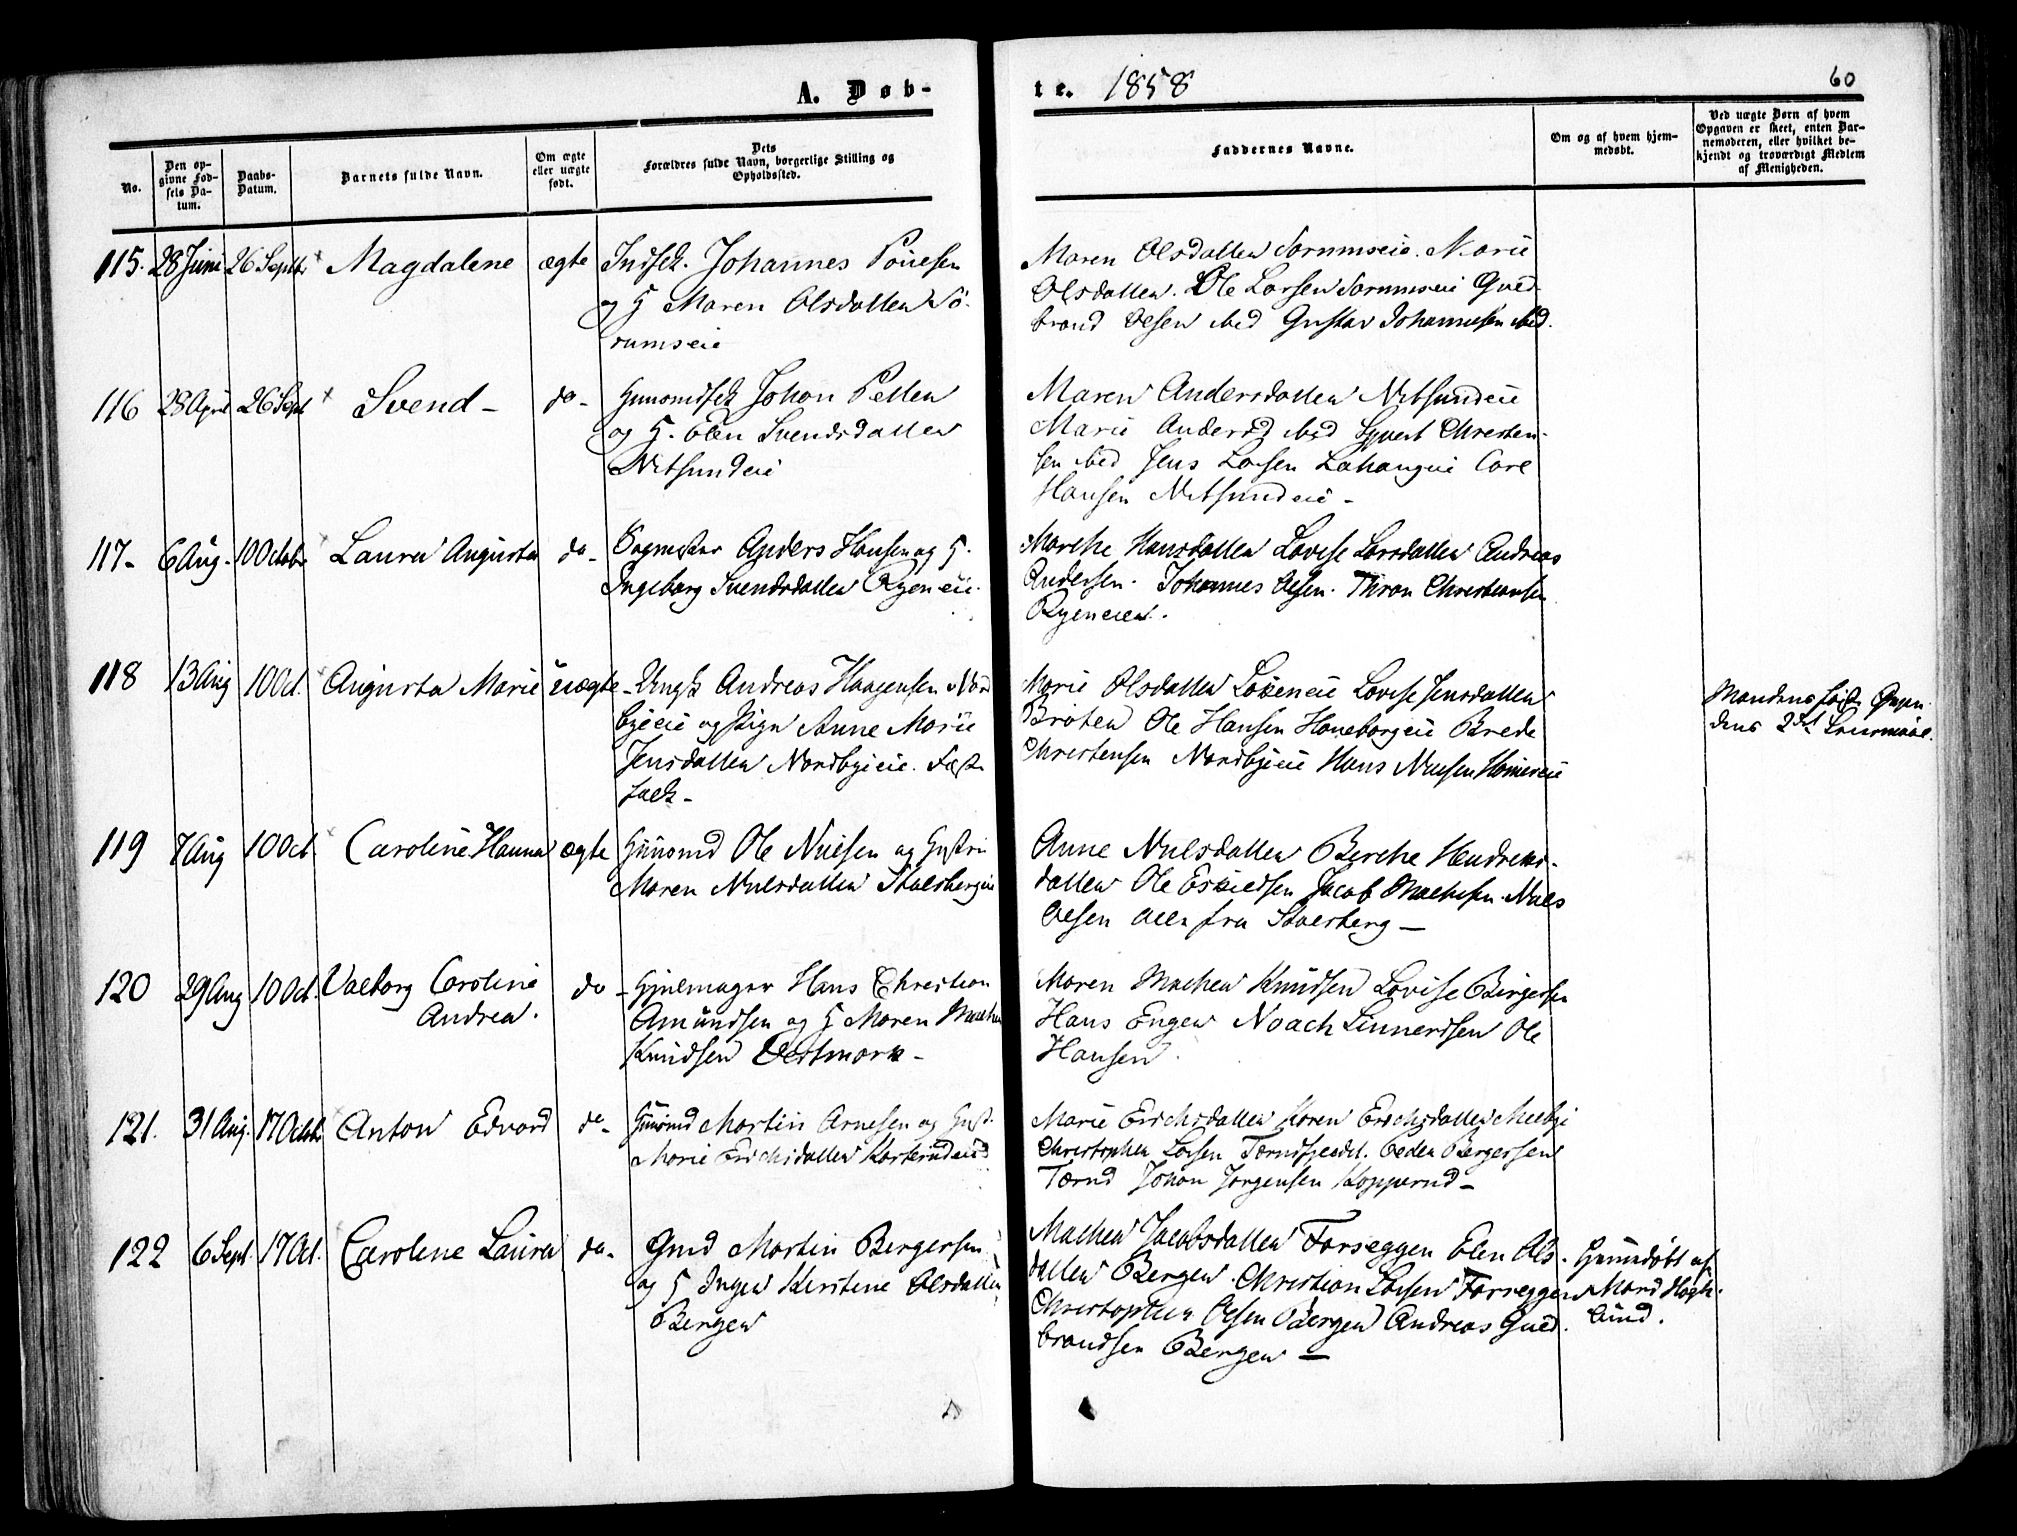 A. Døb-
te. 1858
60
No.
Den op-
givne Fød-
sels Da-
tum.
Daabs-
Datum.
Barnets fulde Navn.
Om ægte
eller uægte
født.
Dets
Forældres fulde Navn, borgerlige Stilling og
Opholdssted.
Faddernes Navne.
Om og af hvem hjem-
medøbt.
Ved uægte Børn af hvem
Opgaven er skeet, enten Bar-
nemoderen, eller hvilket be-
kjendt og troværdigt Medlem
af Menigheden.
115. 28 Juni 26 Septbr Magdalene ægte Johannes
og H Maren Olsdatter Sö-
rumseie
Maren Olsdatter Sorumseie. Marie
Olsdatter. Ole Larsen Sorumseie Guld-
brand Olsen ibid Gustav Johannesen ibid.
116 28 April 26 Sept Svend - do - Johan
og H. Elen Svendsdatter
Nitsundeie
Maren Andersdatter Nitsundeie
Marie Andersd ibid Syvert Christen-
sen ibid Jens Larsen Carl
Hansen Nitsundeie -
117- 6 Aug. 10 Octobr Laura Augusta do - Anders Hansen og H.
Ingeborg Svendsdatter Ryeneie.
Marthe Hansdatter Lovise Larsdatter Andreas
Andersen. Johannes Olsen. Thron Christiansen
Ryeneier.
118 13 Aug 10 Oct. Augusta Marie uægte - Ungk Andreas Haagensen Nord
byeie og Pige Anne Marie
Jensdatter Nordbyeie.
Marie Olsdatter Løkeneie Lovise Jensdatter
Bråten Ole Hansen Haneborgeie Brede
Christensen Nordbyeie Hans Nielsen
Mandens
dens 2det Leiermaal.
119 7 Aug 10 Oct. Caroline Hanna ægte Huusmd Ole Nielsen og Hustru
Maren Nielsdatter Stalsbergeie
Anne Nielsdatter Berthe Hendriks-
datter Ole Eskildsen Jacob Mathisen Niels
Olsen alle fra Stalsberg -
120 29 Aug 10 Oct. Valborg Caroline
Andrea. do - Hjulmager Hans Christian
Amundsen og H Maren Mathea
Knudsen Vestmark -
Maren Mathea Knudsen Lovise Birgersen
Hans Engen Noach Linnertsen Ole
Hansen.
121. 31 Aug. 17 Octobr Anton Edvard do - Huusmd Martin Arnesen og Hust.
Marie Erichsdatter
Marie Erichsdatter Karen Erichsdatter Melby
Christopher Larsen Peder Bergersen
Tærud Johan Jørgensen Kopperud -
122 6 Sept. 17 Oct. Caroline Laura do - Grmd Martin Bergersen
og H Inger Kirstine Olsdatter
Bergen
Mathea Jacobsdatter Farseggen Elen Ols-
datter Bergen. Christian Larsen Farseggen
Christopher Olsen Bergen Andreas Guld-
brandsen Bergen -
Hjemdøbt af
Mard Høgh-
lund.